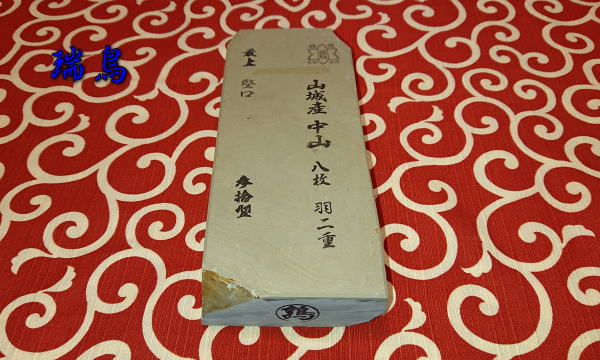 瑞鳥
山城産 中山 八枚 羽二重
最上 堅口
参拾型